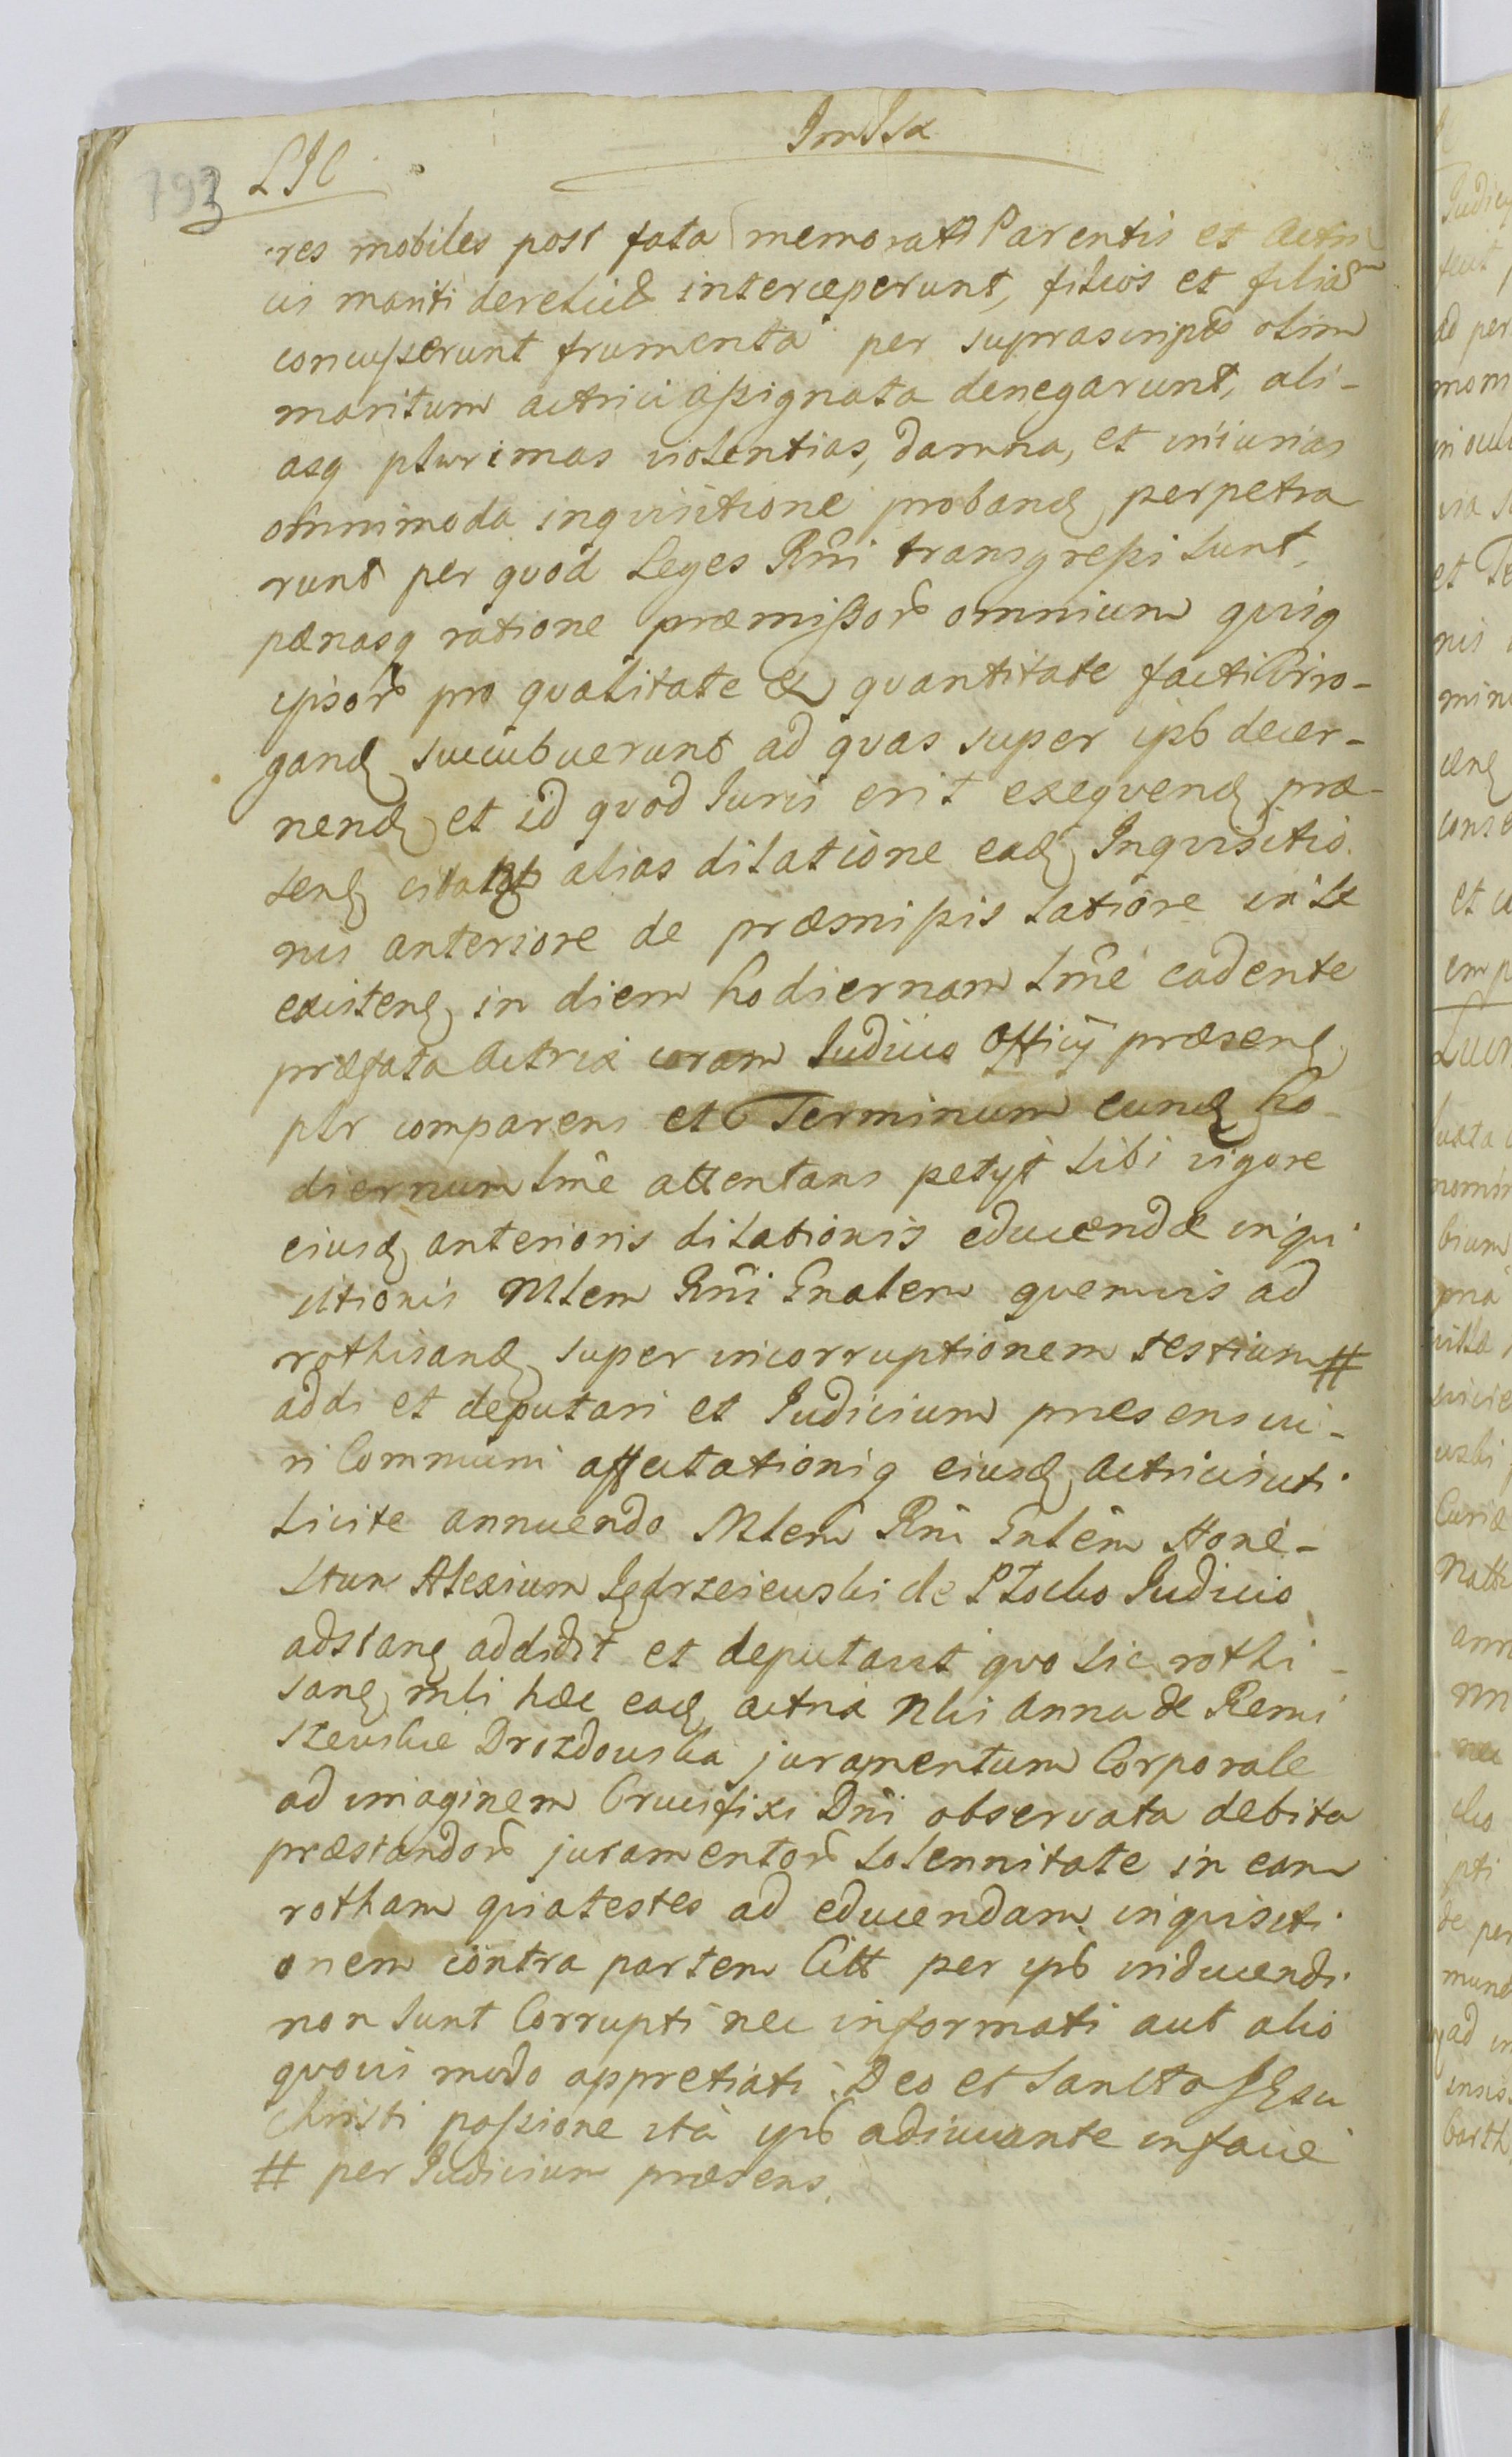 793 LJC
res mobiles post fata memorati Parentis et Actri
cis mariti derelict interceperunt, filios et filias
concusserunt frumenta per suprascriptu olim
maritum actrici assignata denegarunt, ali-
asq plurimas violentias, damna, et iniurias
omnimoda inquisitione proband perpetra
runt per quod Leges Rni transgressi sunt,
pænasq ratione præmissor omnium quiq
ipsor pro qualitate & quantitate facti irro-
gand succubuerunt ad quas super ips decer-
nend et id quod Iuris erit exequend præ-
sens alias dilatione ead Inquisitio
nis anteriore de præmissis latiore in se
existens in diem hodiernam tme cadente
præfata Actrix coram Iudicio Officij præsens
plr comparens et Terminum eund ho-
diernum tme attentans petyt sibi vigore
eiusd anterioris dilationis educendæ inqui
sitionis Mlem Rni Gnalem quemvis ad
rothisand super incorruptionem testium #
addi et deputari et Iudicium præsens iu-
ri Communi affectationiq eiusd actricis uti
licite annuendo Mlem Rni Gnlem Hone-
stum Alexium Jędrzeiewski de Płocko Iudicio
adstans addidit et deputavit quo sic rothi-
sans mli hæc ead actrix Nlis Anna de Remi
szewskie Drozdowska juramentum Corporale
ad imaginem Crucifixi Dni observata debita
præstandor juramentor solennitate in eam
rotham quia testes ad educendam inquisiti
onem contra partem Citt per ips inducendi
non sunt Corrupti nec informati aut alio
quovis modo appretiati. Deo et Sancta Jesu
Christi passione ita ips adiuvante in facie
# per Iudicium præsens.